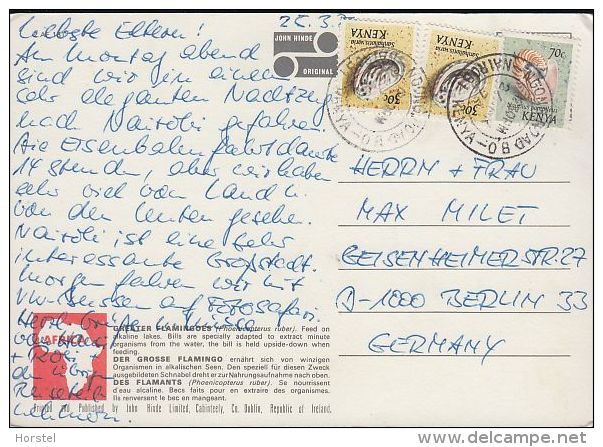 Liebste Eltern! 25.3.
Am Montag abend
sind wir in einem
sehr eleganten Nachtzug
nach Nairobi gefahren.
Die Eisenbahnfahrt dauerte
14 Stunden, aber wir haben
sehr viel vom Land u.
von den Leuten gesehen.
Nairobi ist eine sehr
interessante Großstadt.
Morgen fahren wir mit
VW-Bussen auf Fotosafari.
JOHN HINDE
ORIGINAL
30c
Sanhaliotis varia
KENYA
30c
Sanhaliotis varia
KENYA
70c
Nautilus pompilius
KENYA
HERRN + FRAU
MAX MILET
GEISENHEIMERSTR. 27
D-1000 BERLIN 33
GERMANY
AFRICA
GREATER FLAMINGOES (Phoenicopterus ruber). Feed on
alkaline lakes. Bills are specially adapted to extract minute
organisms from the water, the bill is held upside-down when
feeding.
DER GROSSE FLAMINGO ernährt sich von winzigen
Organismen in alkalischen Seen. Den speziell für diesen Zweck
ausgebildeten Schnabel dreht er zur Nahrungsaufnahme nach oben.
DES FLAMANTS (Phoenicopterus ruber). Se nourrissent
d'eau alcaline. Becs faits pour en extraire des organismes.
Ils renversent le bec en mangeant.
Printed and Published by John Hinde Limited, Cabinteely, Co. Dublin, Republic of Ireland.
Horstel